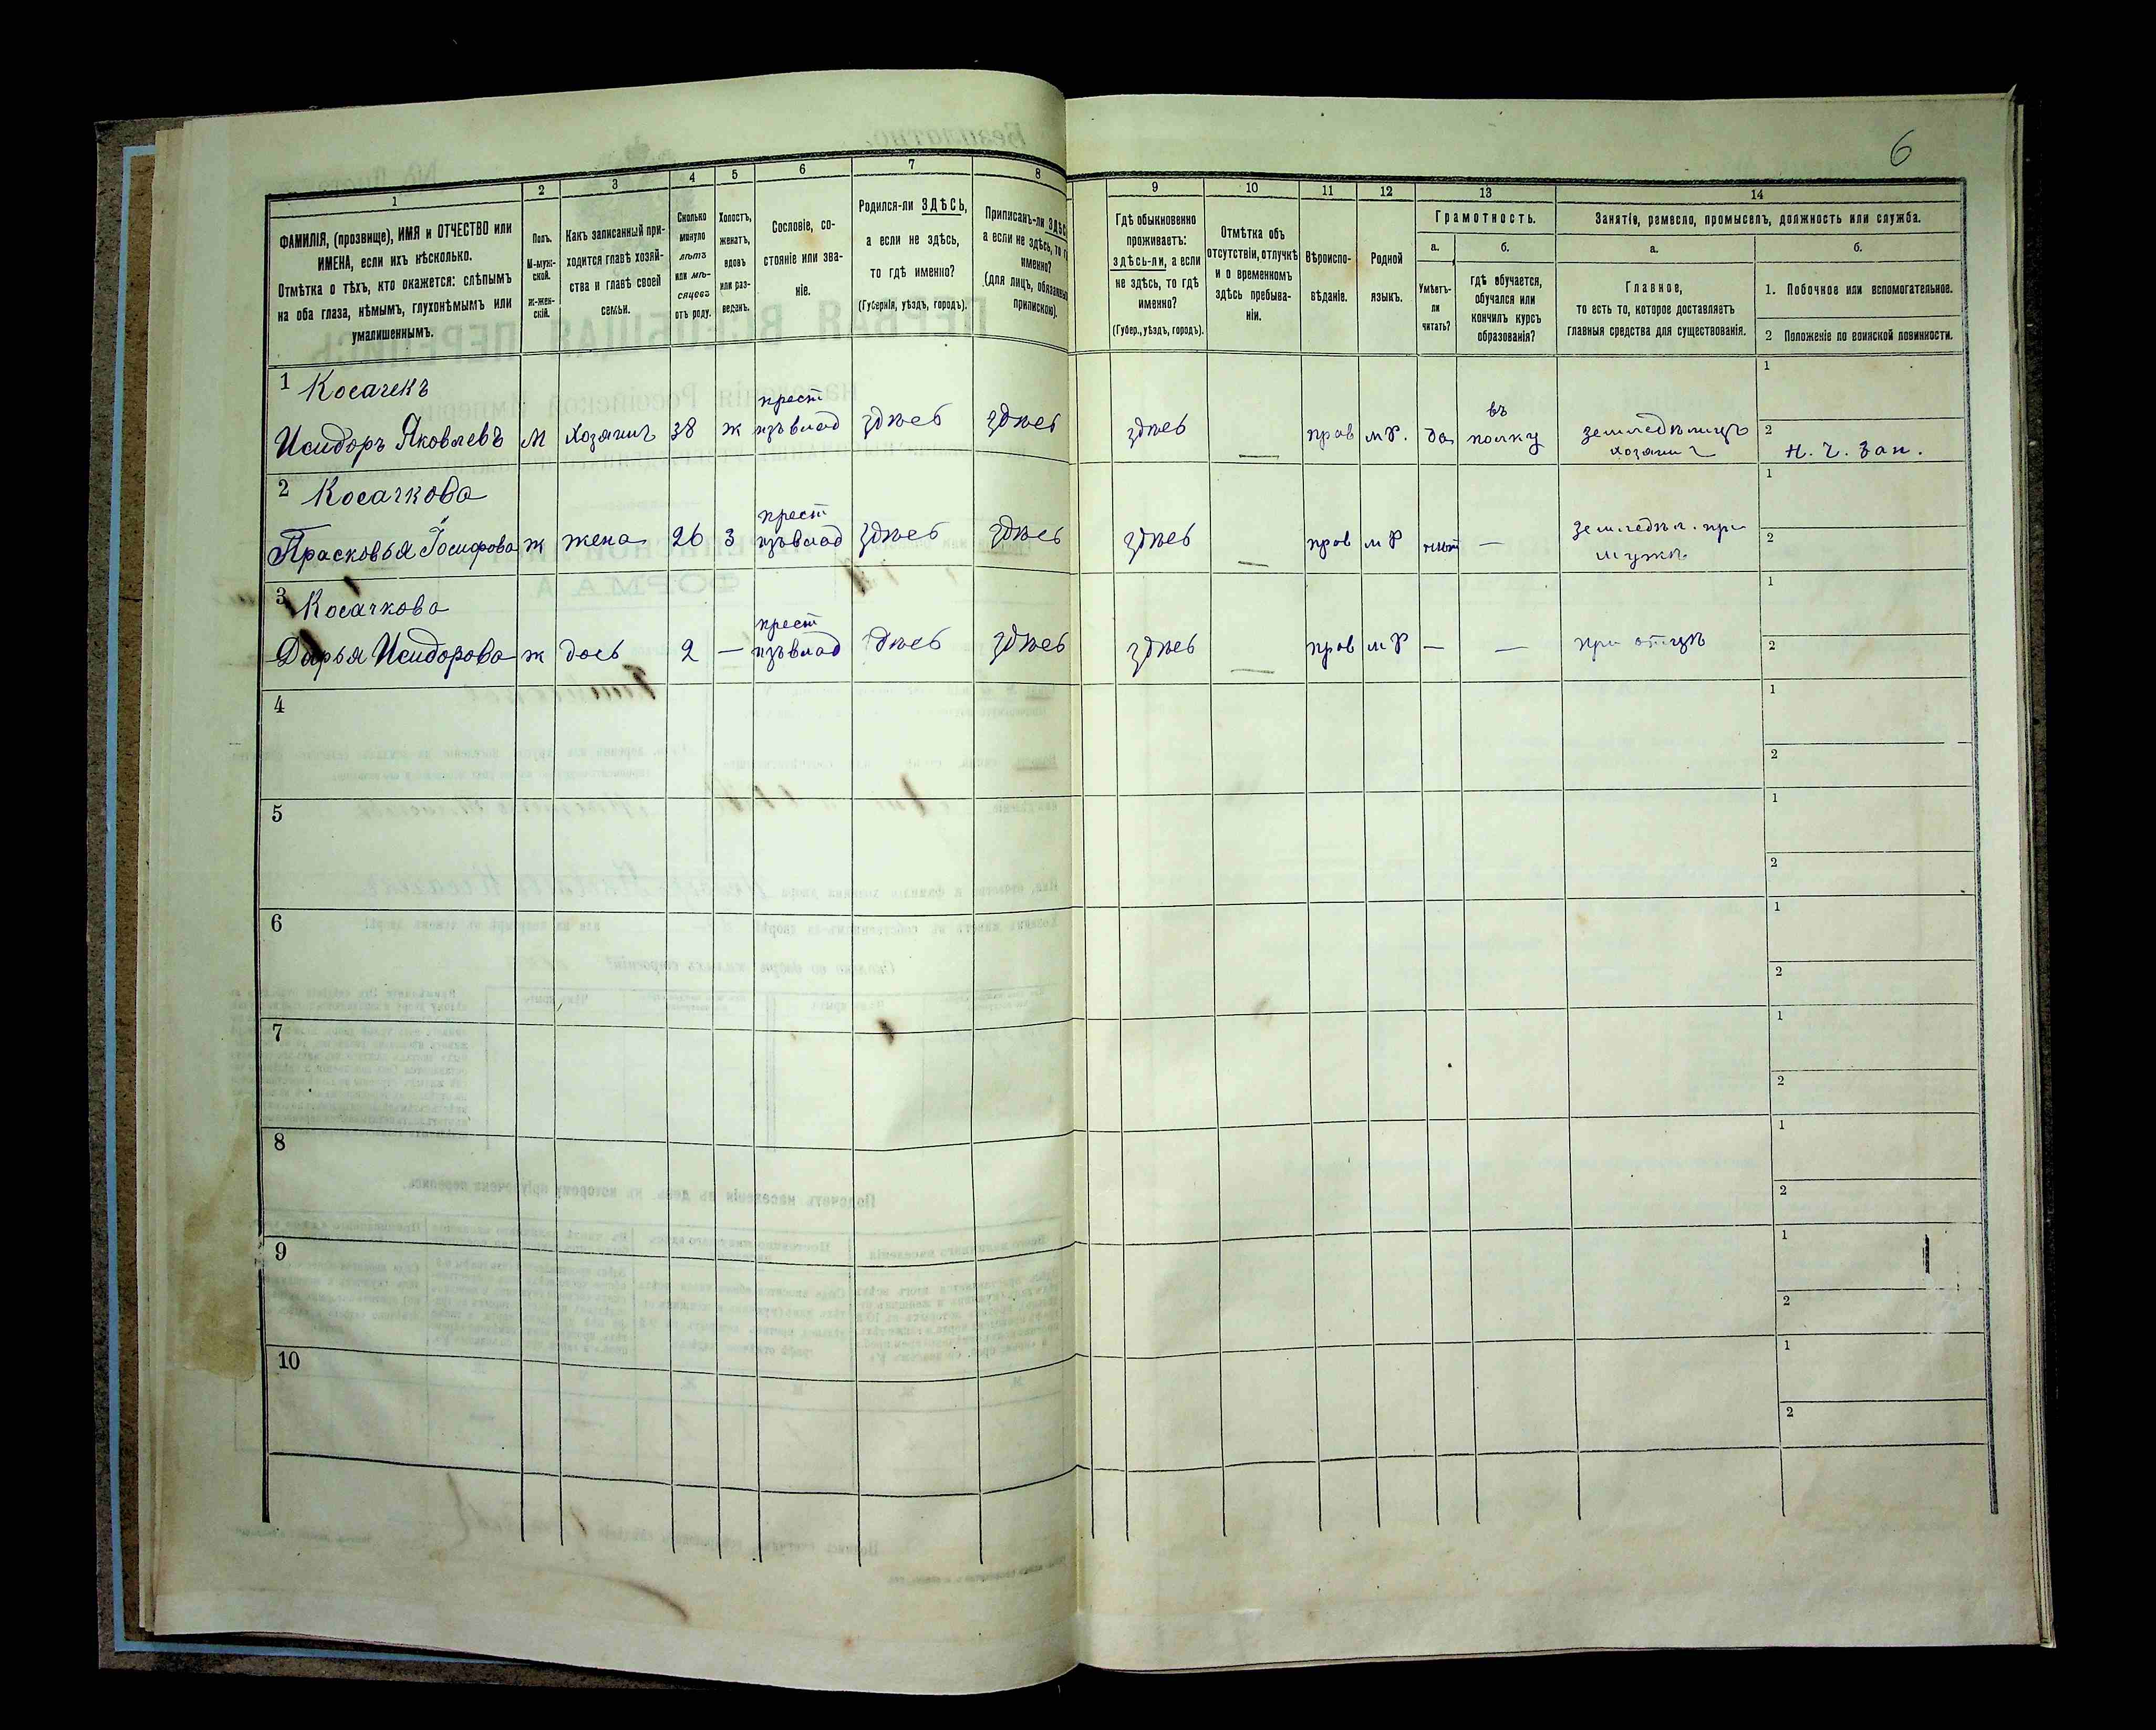 6
1 2 3 4 5 6 7 8 9 10 11 12 13 14
ФАМИЛІЯ, (прозвище), ИМЯ и ОТЧЕСТВО или
ИМЕНА, если ихъ нѣсколько.
Отмѣтка о тѣхъ, кто окажется: слѣпымъ
на оба глаза, нѣмымъ, глухонѣмымъ или
умалишеннымъ.
Полъ.
М-муж-
ской.
Ж-жен-
скій.
Какъ записанный при-
ходится главѣ хозяй-
ства и главѣ своей
семьи.
Сколько
минуло
лѣтъ
или мѣ-
сяцовъ
отъ роду.
Холостъ,
женатъ,
вдовъ
или раз-
веденъ.
Сословіе, со-
стояніе или зва-
ніе.
Родился-ли ЗДѢСЬ,
а если не здѣсь,
то гдѣ именно?
(Губернія, уѣздъ, городъ).
Приписанъ-ли
а если не здѣсь, то
именно?
(для лицъ,
припискою).
Гдѣ обыкновенно
проживаетъ:
здѣсь-ли, а если
не здѣсь, то гдѣ
именно?
(Губер., уѣздъ, городъ).
Отмѣтка объ
отсутствіи, отлучкѣ
и о временномъ
здѣсь пребыва-
ніи.
Вѣроиспо-
вѣданіе.
Родной
языкъ.
Грамотность.
а. б.
Умѣетъ-
ли
читать?
гдѣ обучается,
обучался или
кончилъ курсъ
образованія?
Занятіе, ремесло, промыселъ, должность или служба.
а. б.
Главное,
то есть то, которое доставляетъ
главныя средства для существованія.
1. Побочное или вспомогательное.
2 Положеніе по воинской повинности.
1 Косачекъ
Исидоръ Яковлевъ М хозяинъ 38 ж крест изъ влад здѣсь здѣсь здѣсь — прав м р. да въ полку земледѣлецъ хозяинъ 1 2 Н. Ч. Зап.
2 Косачкова
Прасковья Іосифова ж жена 26 З крест изъ влад здѣсь здѣсь здѣсь — прав м р нѣт — земледѣл. при мужѣ 1 2
3 Косачкова
Дарья Исидорова ж дочь 2 — крест изъ влад здѣсь здѣсь здѣсь — прав м р — — при отцѣ 1 2
4 1 2
5 1 2
6 1 2
7 1 2
8 1 2
9 1 2
10 1 2